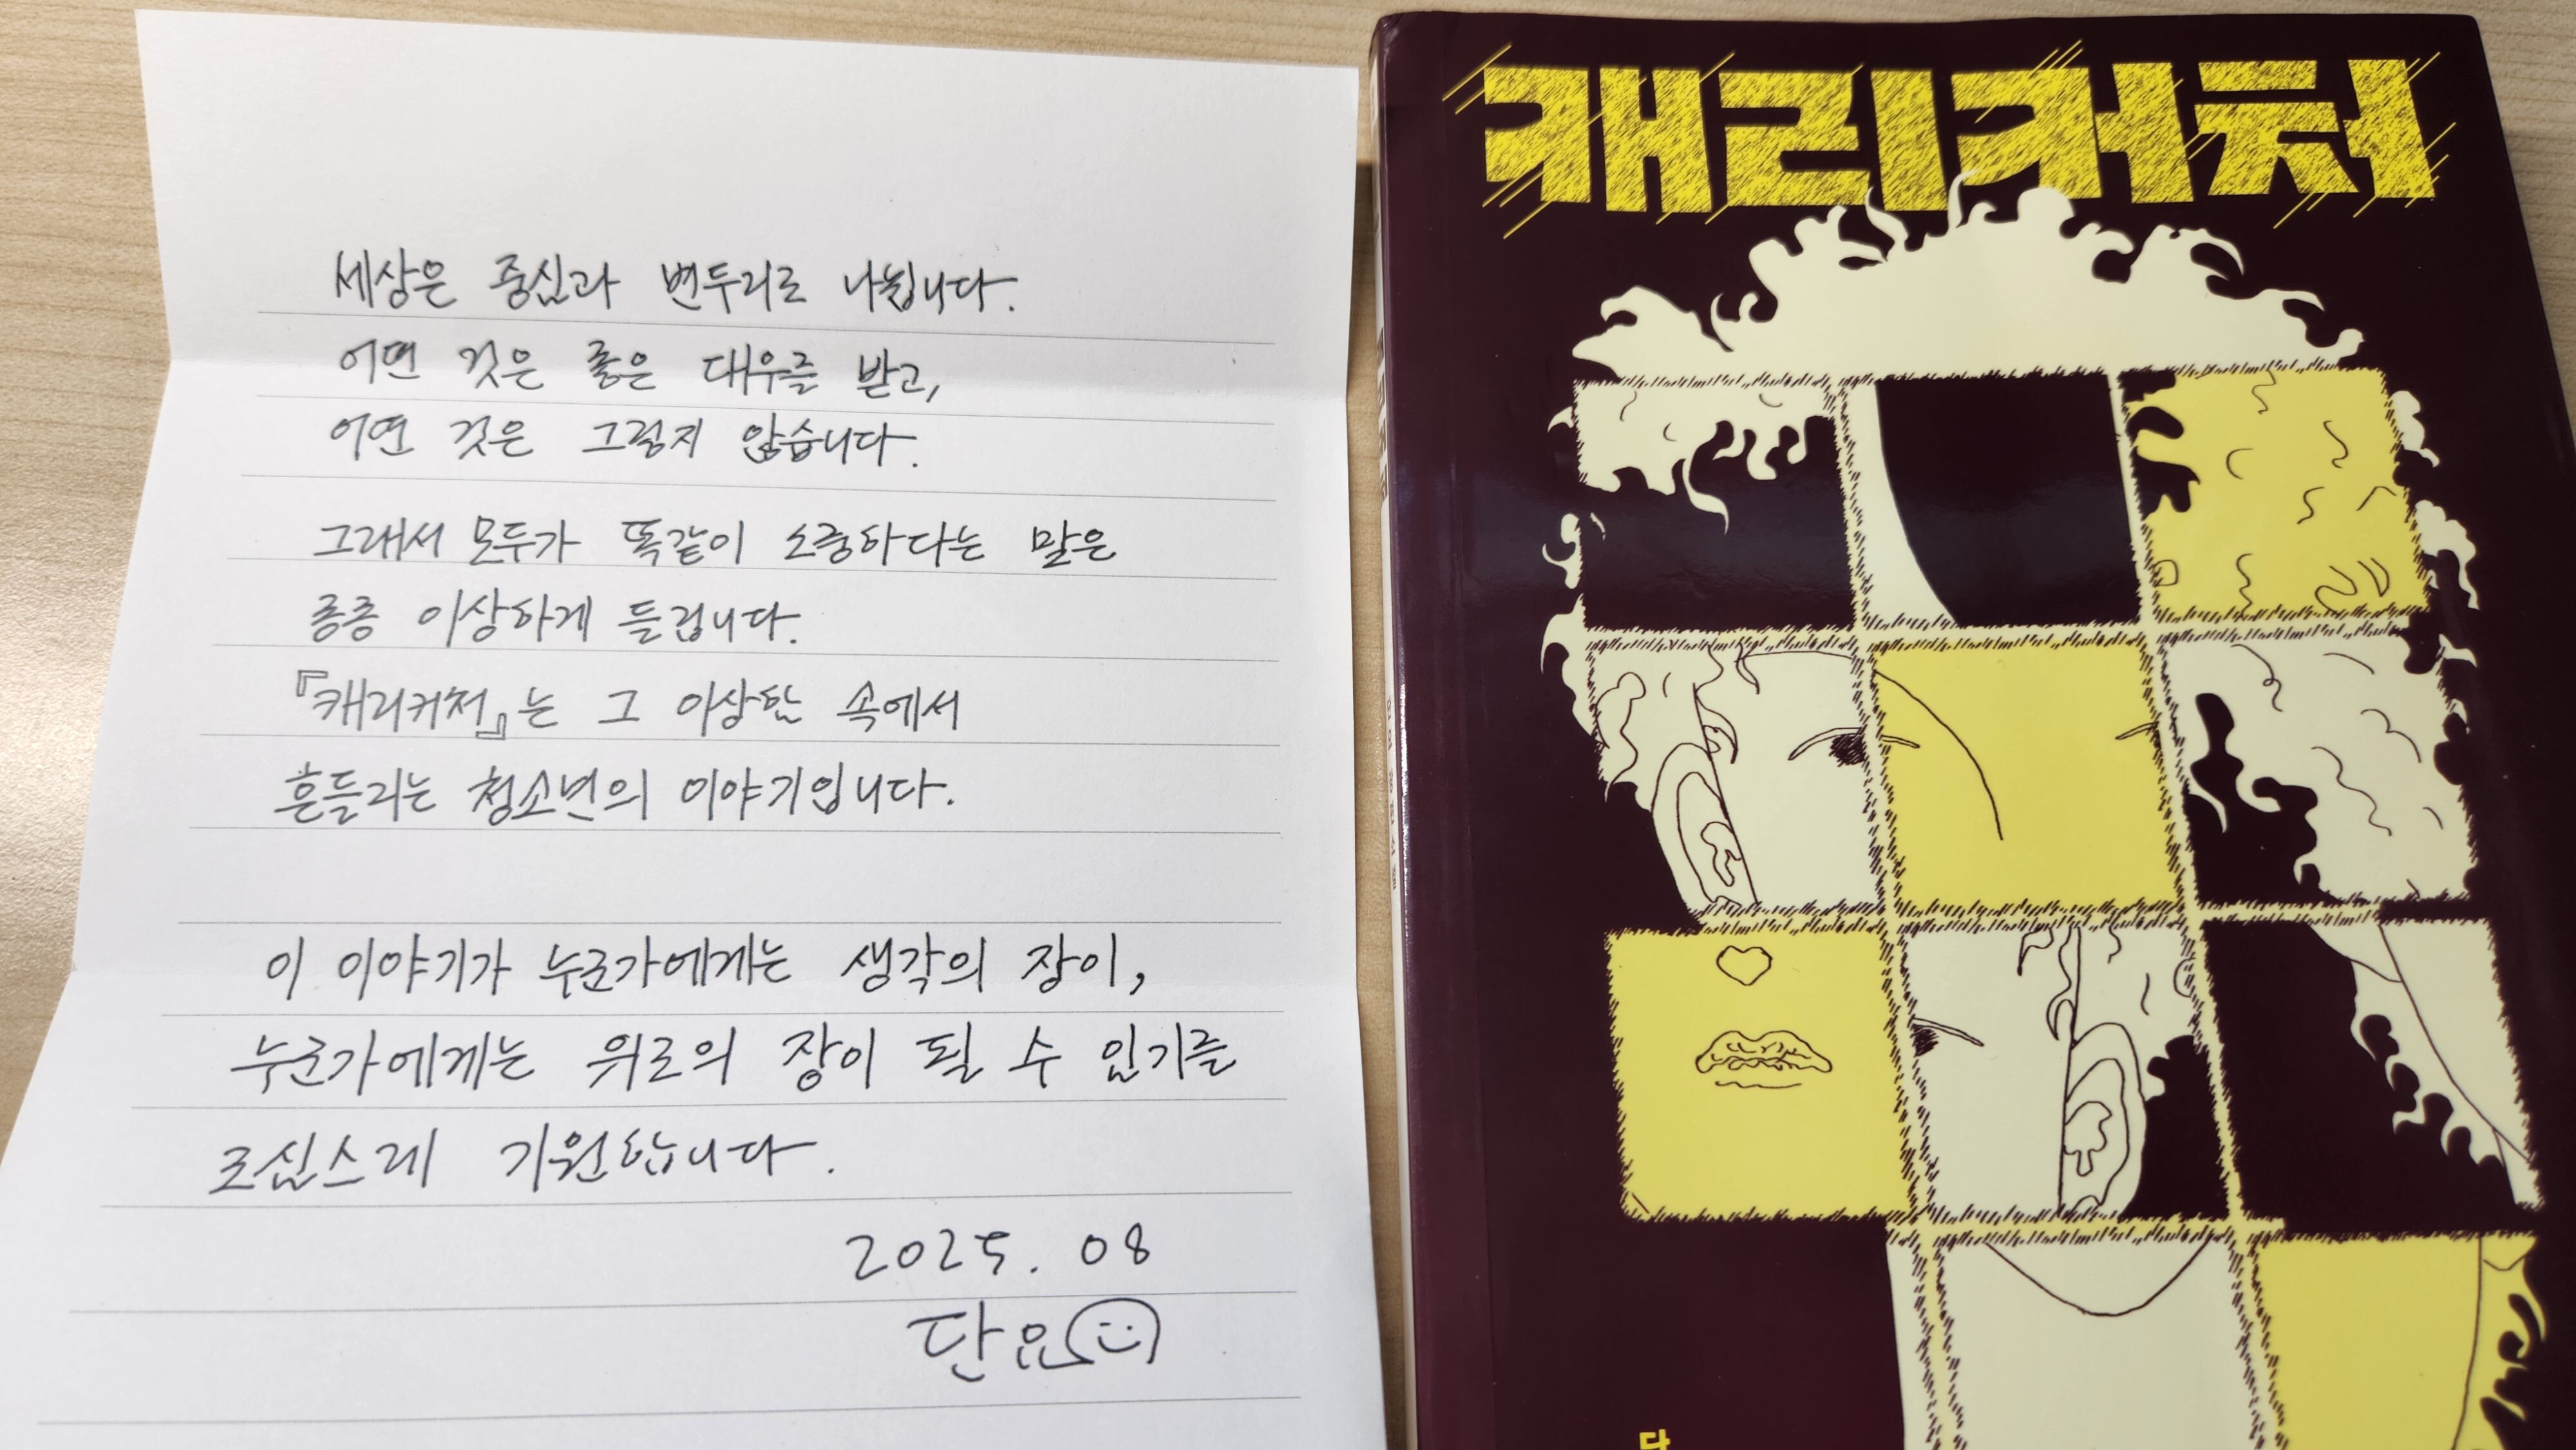 세상은 중심과 변두리로 나뉩니다.
어떤 것은 좋은 대우를 받고,
어떤 것은 그렇지 않습니다.
그래서 모두가 똑같이 소중하다는 말은
종종 이상하게 들립니다.
『캐리커처』는 그 이상함 속에서
흔들리는 청소년의 이야기입니다.
이 이야기가 누군가에게는 생각의 장이,
누군가에게는 위로의 장이 될 수 있기를
조심스레 기원합니다.
2025. 08
단요
캐리커처